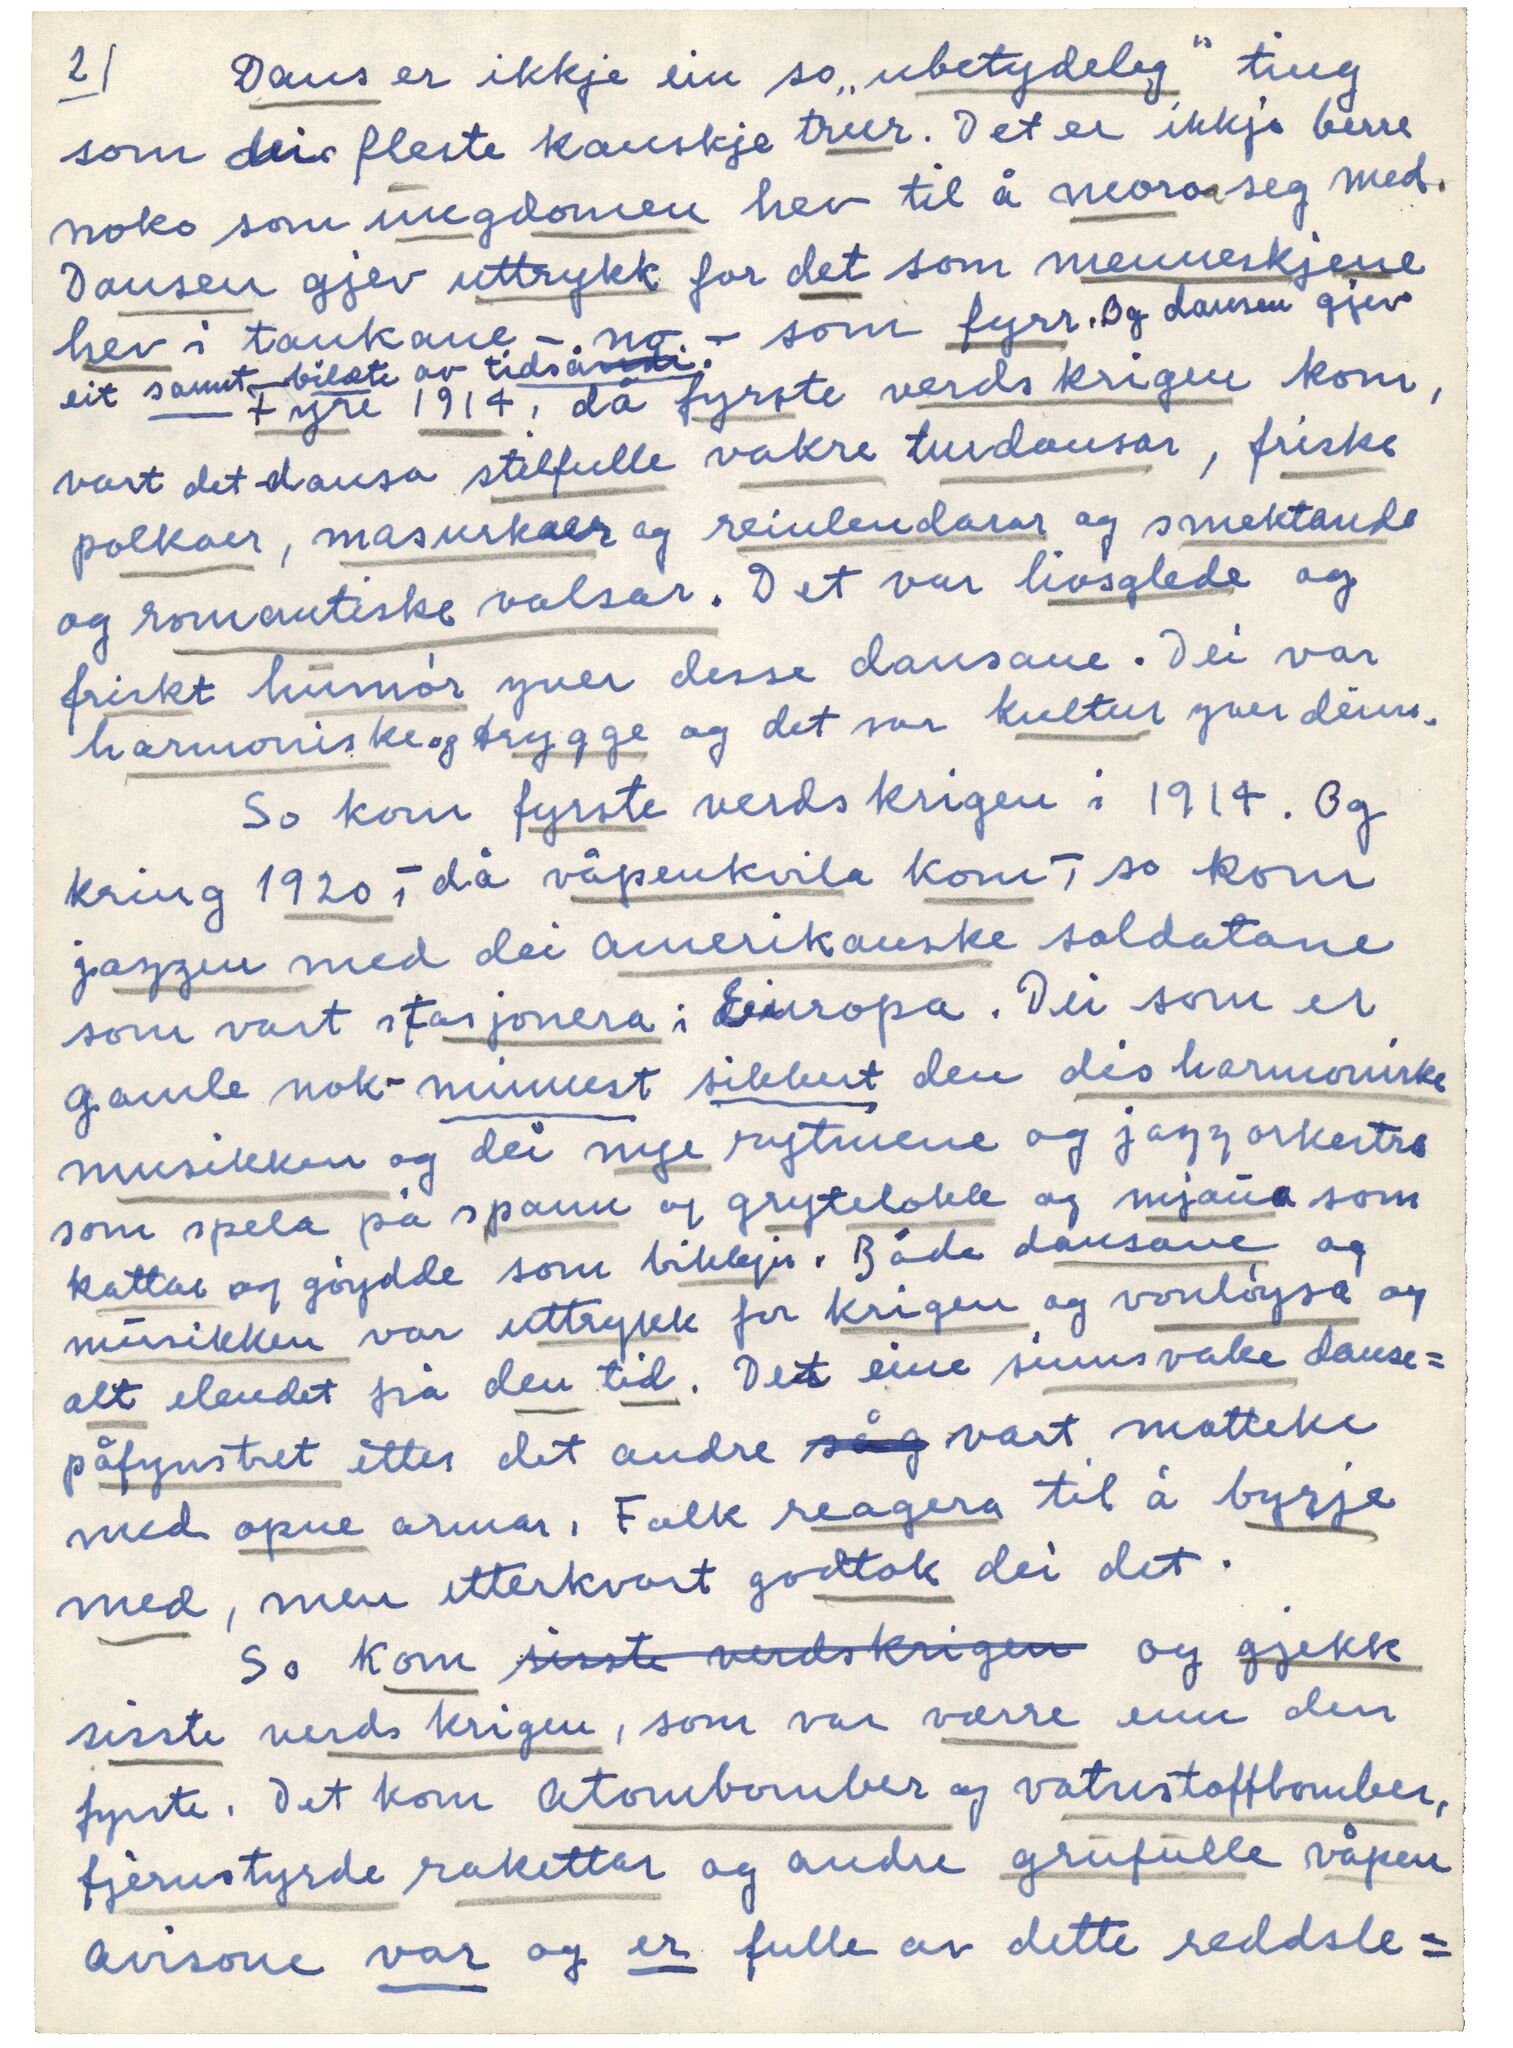 2/ Dans er ikkje ein so „ubetydeleg" ting
som dei fleste kanskje trur. Det er ikkje berre
noko som ungdomen hev til å moroa seg med.
Dansen gjev uttrykk for det som menneskjene
hev i tankane – no – som fyrr. Og dansen gjev
eit sannt bilæte av tidsåndi.
Fyre 1914, då fyrste verdskrigen kom,
vart det dansa stilfulle vakre turdansar, friske
polkaer, masurkaer og reinlendarar og smektande
og romantiske valsar. Det var livsglede og
friskt humor yver desse dansane. Dei var
harmoniske og trygge og det var kultur yver deim.
So kom fyrste verdskrigen i 1914. Og
kring 1920 – då våpenkvila kom – so kom
jazzen med dei amerikanske soldatane
som vart stasjonera i Europa. Dei som er
gamle nok – minnest sikkert den disharmoniske
musikken og dei nye rytmene og jazzorkestra
som spela på spann og grytelokk og mjaua som
kattar og gøydde som bikkjer. Både dansane og
musikken var uttrykk for krigen og vonløysa og
alt elendet frå den tid. Det eine sinnsvake danse=
påfynstret etter det andre såg vart motteke
med opne armar. Folk reagera til å byrje
med, men etterkvart godtok dei det.
So kom sisste verdskrigen og gjekk
sisste verdskrigen, som var værre enn den
fyrste. Det kom atombomber og vatnstoffbomber,
fjernstyrde rakettar og andre grufulle våpen
Avisone var og er fulle av dette reddsle=